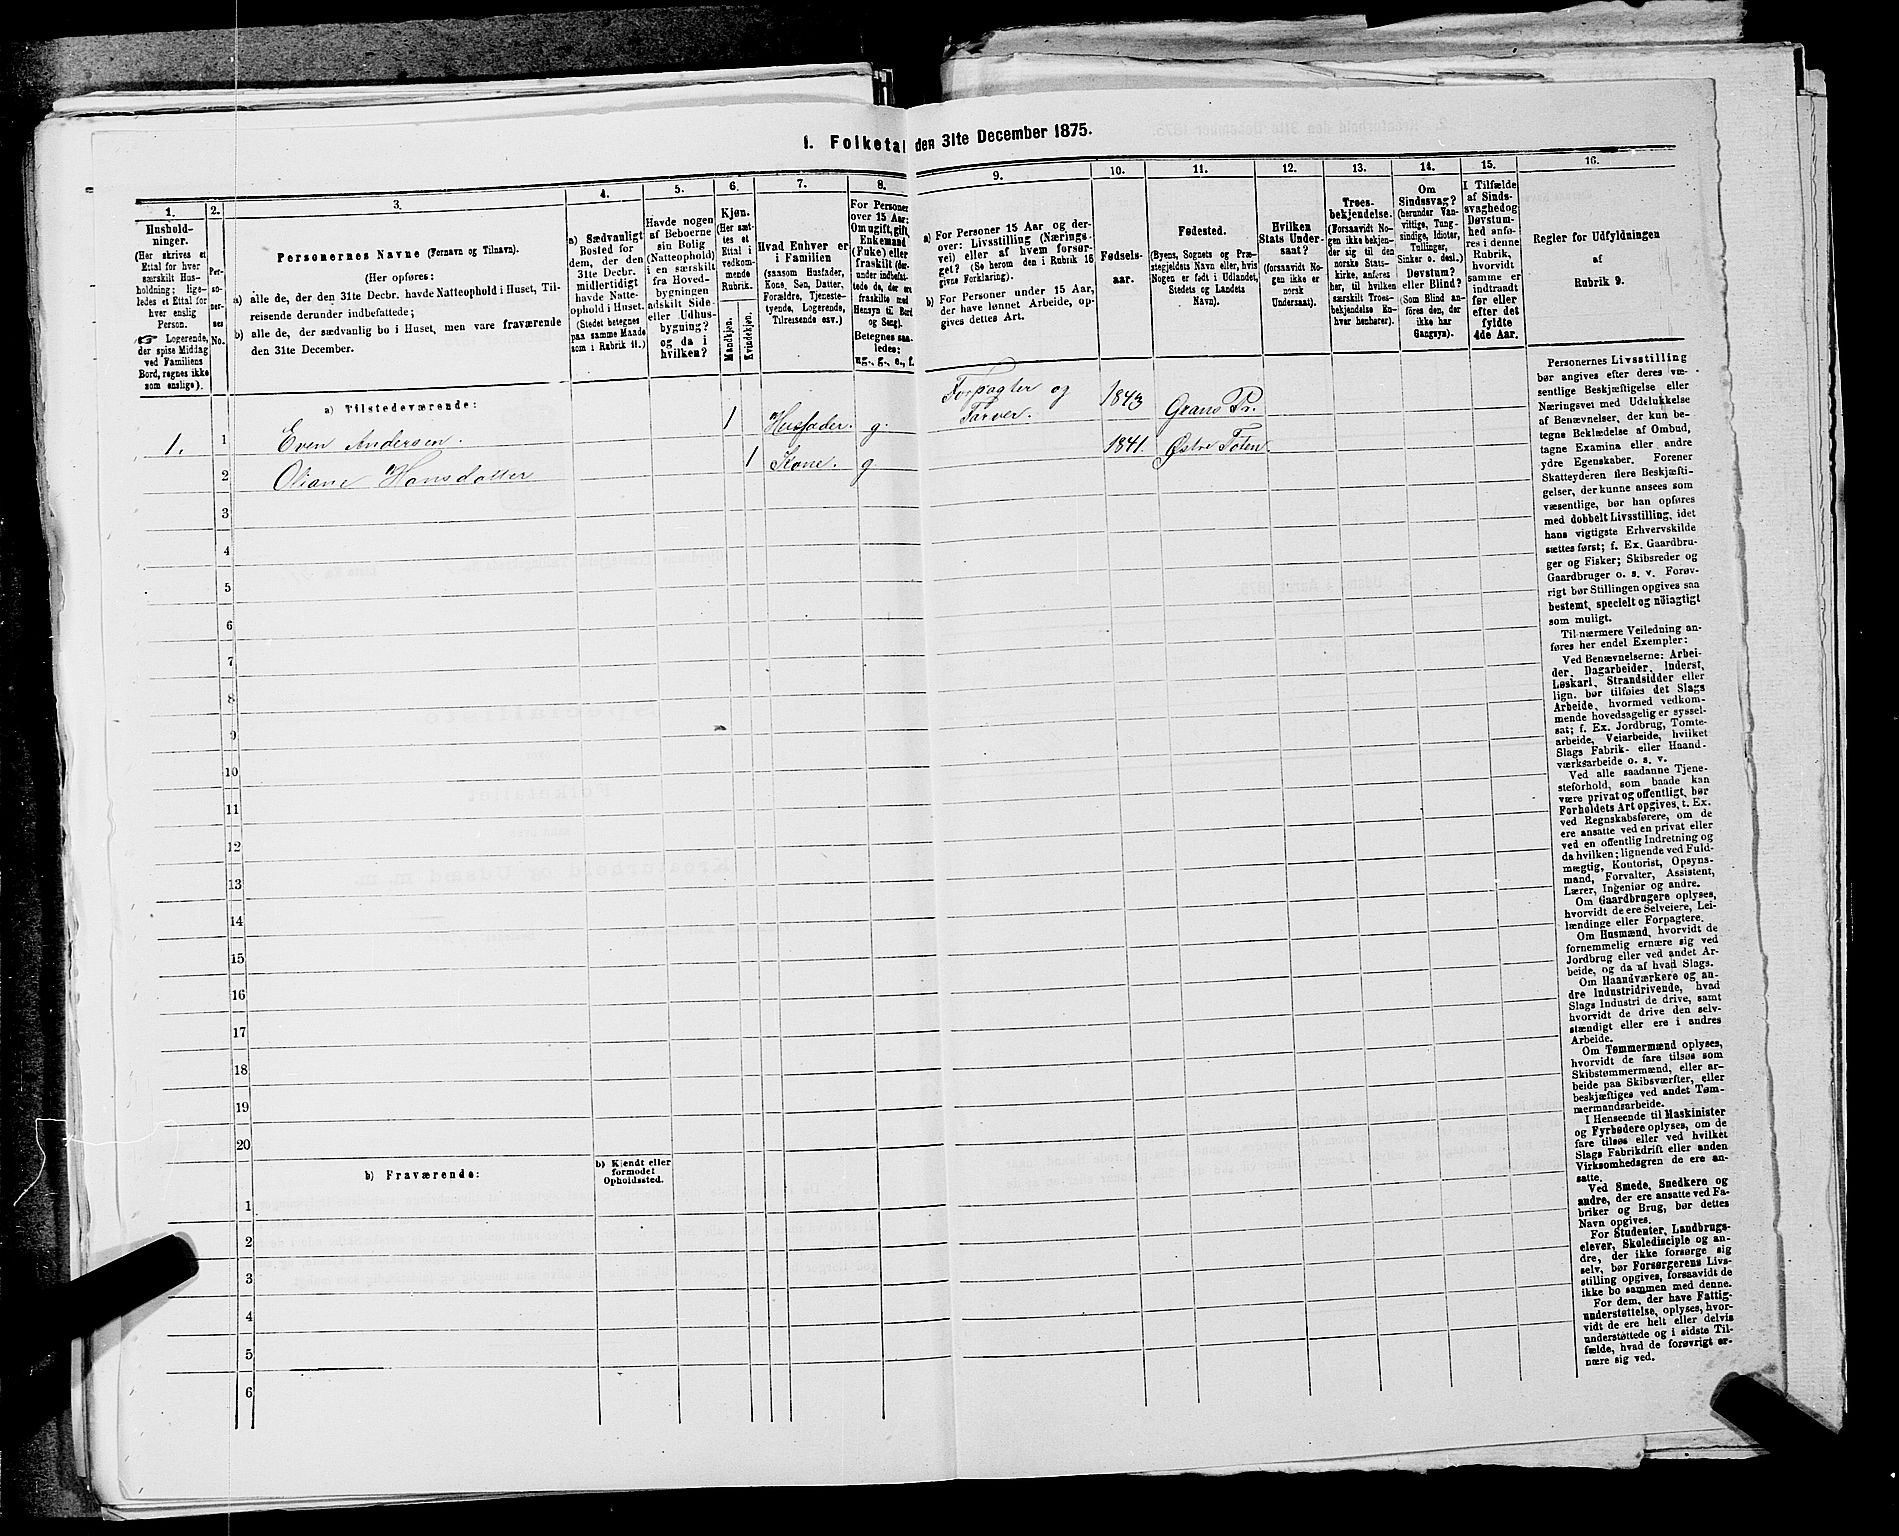 1. Folketal den 31te December 1875.
1.
2.
3.
4.
5.
6.
7.
8.
9.
10.
11.
12.
13.
14.
15.
16.
Hushold-
ninger.
(Her skrives et
Ettal for hver
særskilt Hus-
holdning; lige-
ledes et Ettal for
hver enslig
Person.
☞ Logerende,
der spise Middag
ved Familiens
Bord, regnes ikke
som enslige).
Per-
so-
ner-
nes
No.
Personernes Navne (Fornavn og Tilnavn).
(Her opføres:
a) alle de, der den 31te Decbr. havde Natteophold i Huset, Til-
reisende derunder indbefattede;
b) alle de, der sædvanlig bo i Huset, men vare fraværende
den 31te December.
a) Sædvanligt
Bosted for
dem, der den
31te Decbr.
midlertidigt
havde Natte-
ophold i Huset.
(Stedet betegnes
paa samme Maade
som i Rubrik 11.)
Havde nogen
af Beboerne
sin Bolig
(Natteophold)
i en særskilt
fra Hoved-
bygningen
adskilt Side-
eller Udhus-
bygning?
og da i
hvilken?
Kjøn.
(Her sæt-
tes et
Ettal i
vedkom-
mende
Rubrik.
Mandkjøn.
Kvindekjøn.
Hvad Enhver er
i Familien
(saasom Husfader,
Kone, Søn, Datter,
Forældre, Tjeneste-
tyende, Logerende,
Tilreisende osv.)
For Personer
over 15 Aar:
Om ugift, gift,
Enkemand
(Enke) eller
fraskilt (der-
under indbefat-
tede de, der ere
fraskilte med
Hensyn til Bord
og Seng).
Betegnes saa-
ledes:
ug., g., e., f.
a) For Personer 15 Aar og der-
over: Livsstilling (Nærings-
vei) eller af hvem forsør-
get? (Se herom den i Rubrik 16
givne Forklaring).
b) For Personer under 15 Aar,
der have lønnet Arbeide, op-
gives dettes Art.
Fødsels-
aar.
Fødested.
(Byens, Sognets og Præ-
stegjeldets Navn eller, hvis
Nogen er født i Udlandet,
Stedets og Landets
Navn).
Hvilken
Stats Under-
saat?
(forsaavidt No-
gen ikke er
norsk
Undersaat).
Troes-
bekjendelse.
(Forsaavidt No-
gen ikke bekjen-
der sig til den
norske Stats-
kirke, anføres
her, til hvilken
særskilt Troes-
bekjendelse En-
hver henhører).
Om
Sindssvag?
(herunder Van-
vittige, Tung-
sindige, Idioter,
Tullinger,
Sinker o. desl.)
Døvstum?
eller Blind?
(Som Blind an-
føres den, der
ikke har
Gangsyn).
I Tilfælde
af Sinds-
svaghed og
Døvstum-
hed anfø-
res i denne
Rubrik,
hvorvidt
samme er
indtraadt
før eller
efter det
fyldte
4de Aar.
Regler for Udfyldningen
af
Rubrik 9.
a) Tilstedeværende:
1. 1 Even Andersen. 1 Husfader. g. Forpagter og
Farver. 1843 Grans Pr.
2 Oliane Hansdatter 1 Kone. g 1841. Østre Toten.
3
4
5
6
7
8
9
10
11
12
13
14
15
16
17
18
19
20
b) Fraværende:
b) Kjendt eller
formodet
Opholdssted.
1
2
3
4
5
6
Personernes Livsstilling
bør angives efter deres væ-
sentlige Beskjæftigelse eller
Næringsvei med Udelukkelse
af Benævnelser, der kun be-
tegne Beklædelse af Ombud,
tagne Examina eller andre
ydre Egenskaber. Forener
Skatteyderen flere Beskjæfti-
gelser, der kunne ansees som
væsentlige, bør han opføres
med dobbelt Livsstilling, idet
hans vigtigste Erhvervskilde
sættes først; f. Ex. Gaardbru-
ger og Fisker; Skibsreder og
Gaardbruger o. s. v. Forøv-
rigt bør Stillingen opgives saa
bestemt, specielt og nöiagtigt
som muligt.
Til nærmere Veiledning an-
føres her endel Exempler:
Ved Benævnelserne: Arbei-
der, Dagarbeider, Inderst,
Løskarl, Strandsidder eller
lign. bør tilføies det Slags
Arbeide, hvormed vedkom-
mende hovedsagelig er syssel-
sat; f. Ex. Jordbrug, Tomte-
arbeide, Veiarbeide, hvilket
Slags Fabrik- eller Haand-
værksarbeide o. s. v.
Ved alle saadanne Tjene-
steforhold, som baade kan
være privat og offentligt, bør
Forholdets Art opgives, t. Ex.
ved Regnskabsførere, om de
ere ansatte ved en privat eller
ved en offentlig Indretning og
da hvilken; lignende ved Fuld-
mægtig, Kontorist, Opsyns-
mand, Forvalter, Assistent,
Lærer, Ingeniør og andre.
Om Gaardbrugere oplyses,
hvorvidt de ere Selveiere, Lei-
lændinge eller Forpagtere.
Om Husmænd, hvorvidt de
fornemmelig ernære sig ved
Jordbrug eller ved andet Ar-
beide, og da af hvad Slags.
Om Haandværkere og an-
dre Industridrivende, hvad
Slags Industri de drive, samt
hvorvidt de drive den selv-
stændigt eller ere i andres
Arbeide.
Om Tømmermænd oplyses,
hvorvidt de fare tilsøs som
Skibstømmermænd, eller ar-
beide paa Skibsværfter, eller
beskjæftiges ved andet Tøm-
mermandsarbeide.
I Henseende til Maskinister
og Fyrbødere oplyses, om de
fare tilsøs eller ved hvilket
Slags Fabrikdrift eller anden
Virksomhedsgren de ere an-
satte.
Ved Smede, Snedkere og
andre, der ere ansatte ved Fa-
briker og Brug, bør dettes
Navn opgives.
For Studenter, Landbrugs-
elever, Skoledisciple og an-
dre, der ikke forsørge sig
selv, bør Forsørgerens Livs-
stilling opgives, forsaavidt de
ikke bo sammen med denne.
For dem, der have Fattig-
understøttelse, oplyses, hvor-
vidt de ere helt eller delvis
understøttede og i sidste Til-
fælde, hvad de forøvrigt er-
nære sig ved.